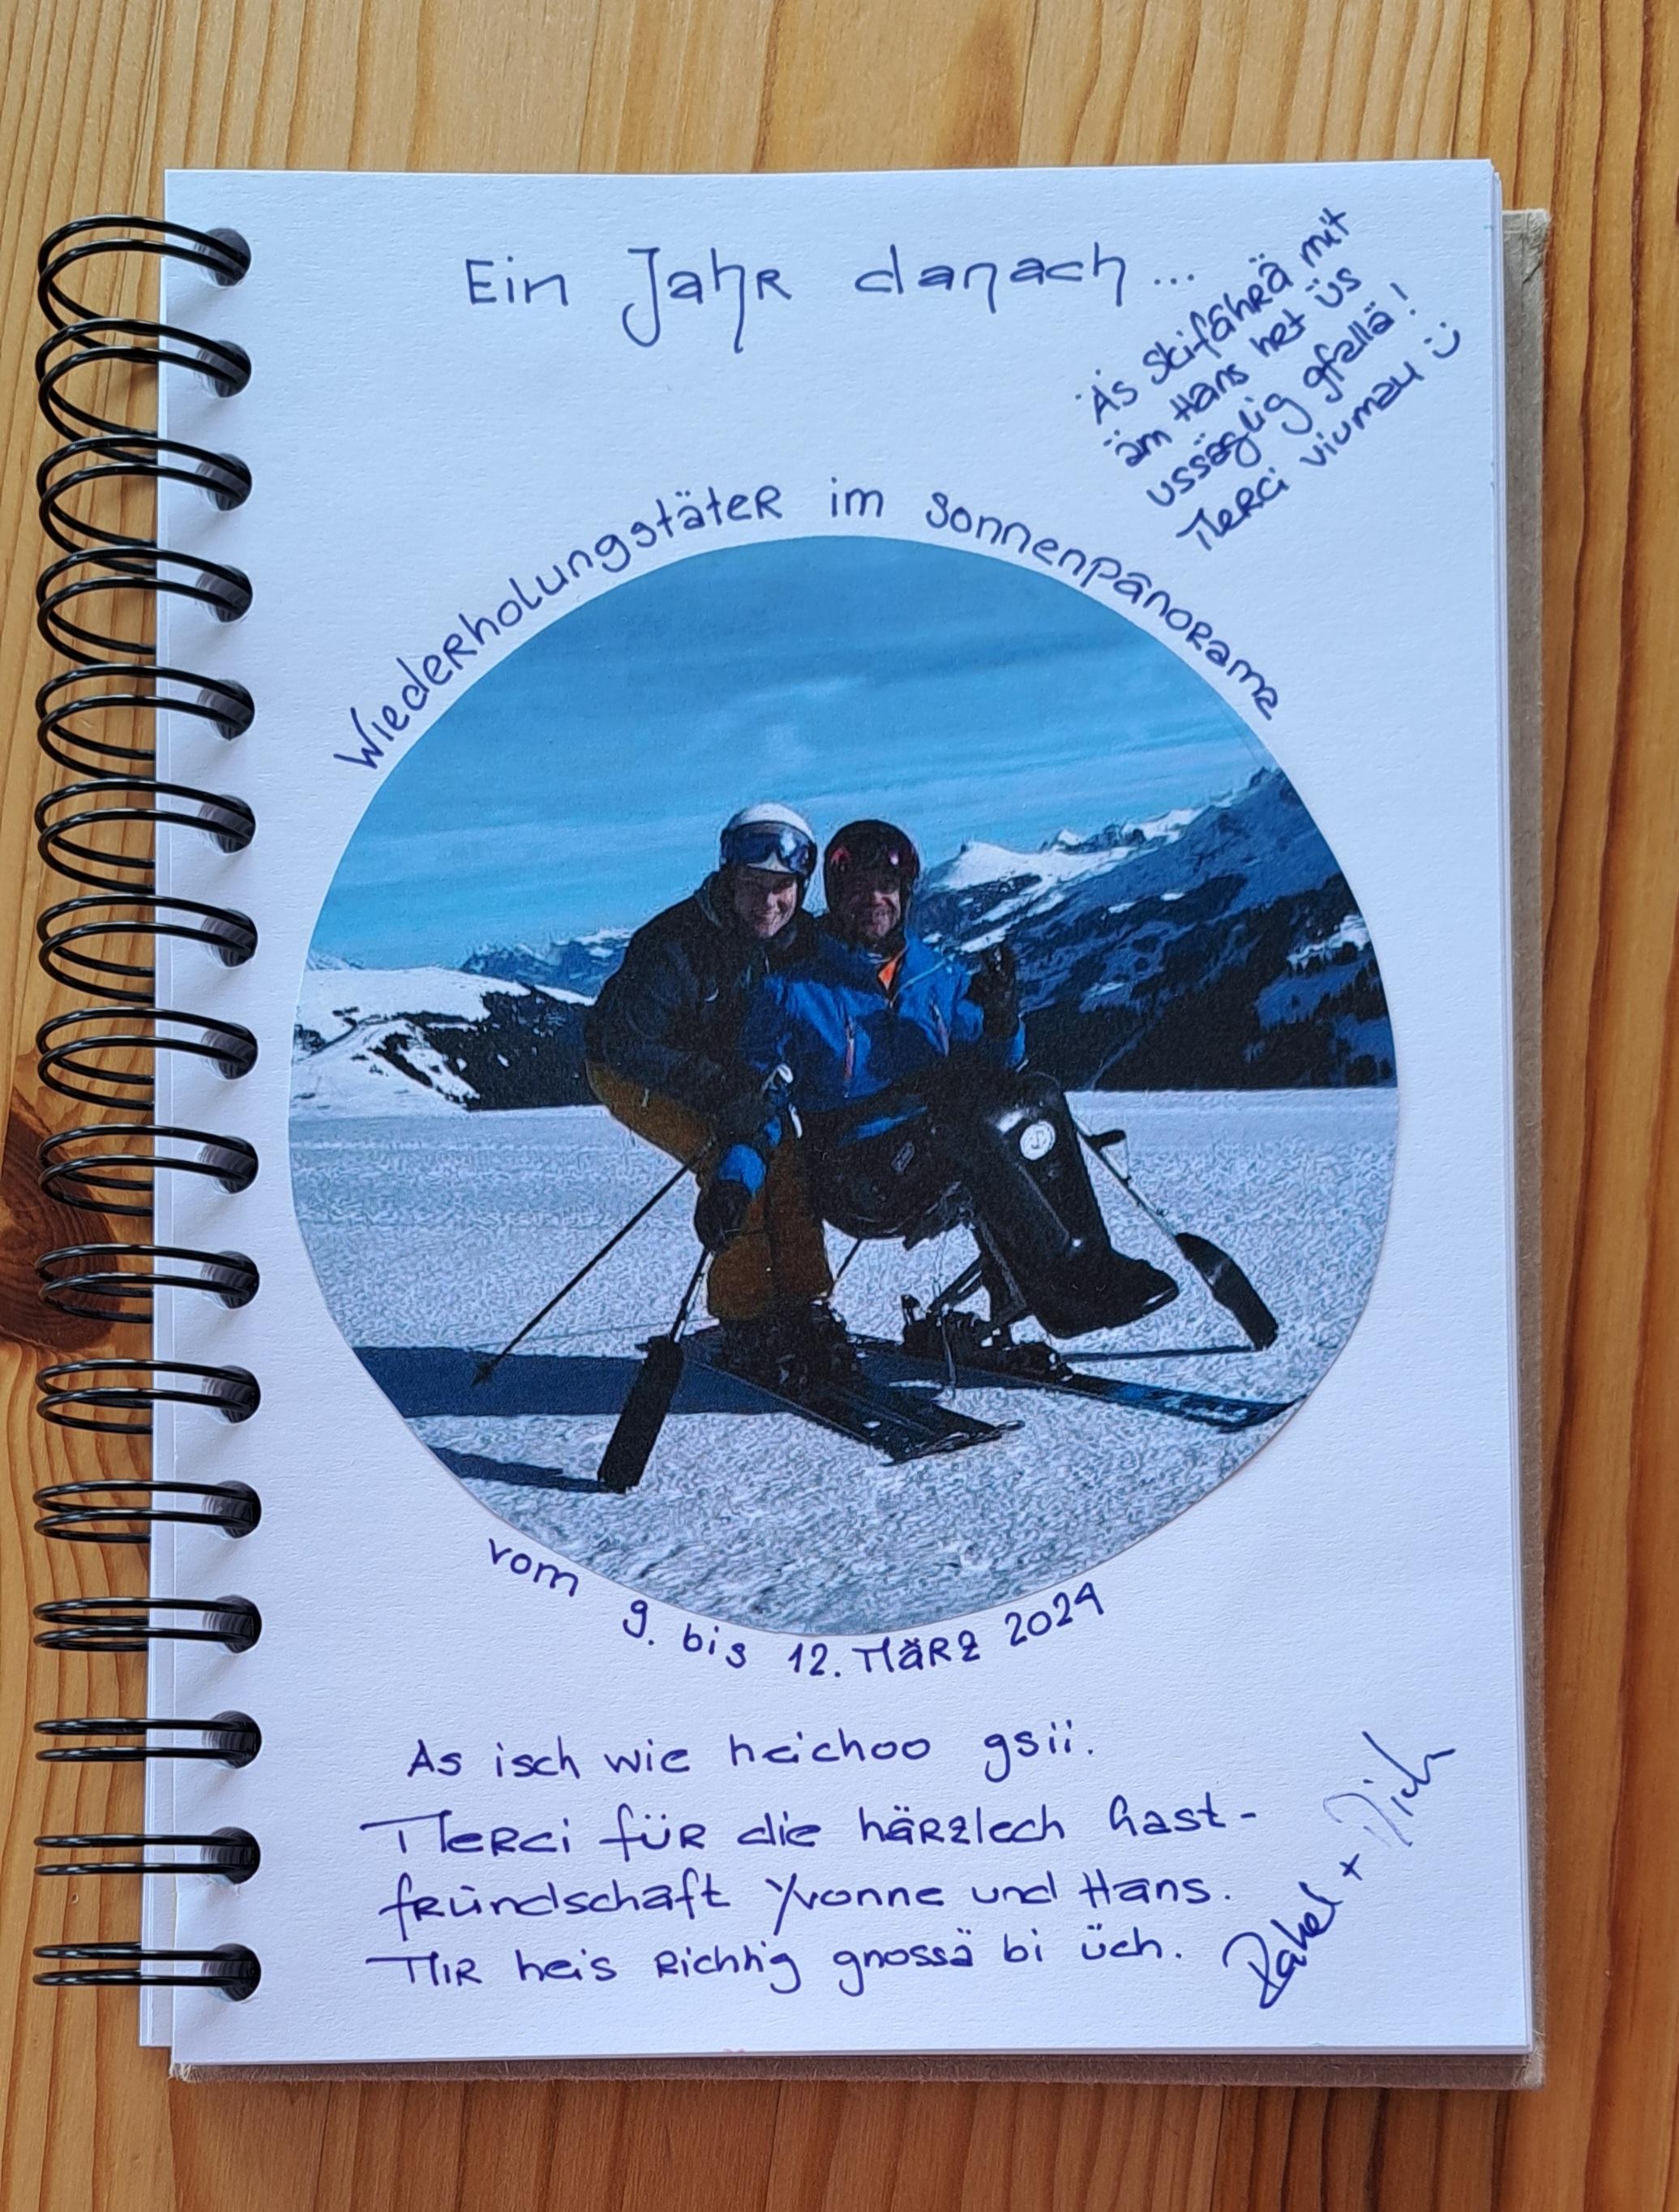 Ein Jahr danach...
Äs Skifahrä mit
äm Hans het üs
ussäglig gfallä!
Merci viumau :)
Wiederholungstäter im Sonnenpanorama
vom 9. bis 12. März 2024
As isch wie heichoo gsii.
Merci für die härzlech Gast-
fründschaft Yvonne und Hans.
Mir heis richtig gnossä bi üch.
Rahel +